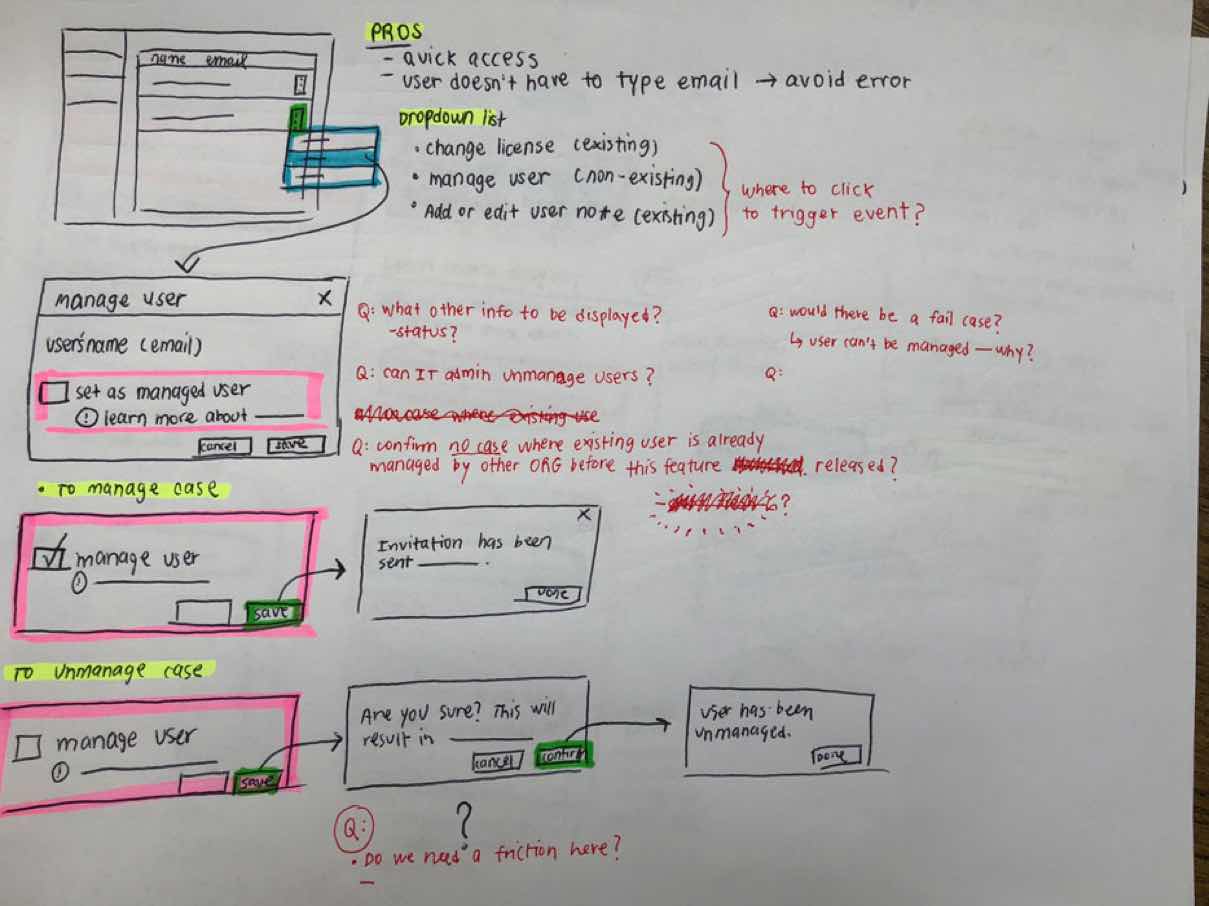 name email
PROS
- quick access
- user doesn't have to type email → avoid error
Dropdown list
• change license (existing)
• manage user (non-existing)
• Add or edit user note (existing)
where to click
to trigger event?
manage user X
user's name (email)
set as managed user
! learn more about
cancel save
Q: what other info to be displayed?
-status?
Q: can IT admin unmanage users?
Q: confirm no case where existing user is already
managed by other ORG before this feature released?
?
Q: would there be a fail case?
↳ user can't be managed — why?
Q:
• To manage case
manage user
!
save
Invitation has been
sent .
X
Done
To unmanage case
manage user
!
save
Are you sure? This will
result in
cancel confirm
user has been
unmanaged.
Done
?
Q:
• Do we need a friction here?